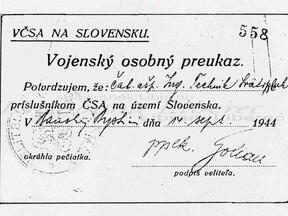 VČSA NA SLOVENSKU.
558
Vojenský osobný preukaz.
Potvrdzujem, že: Čat. ašp. Ing. Technik
príslušníkom ČSA na území Slovenska.
V Banskej Bystrici dňa sept. 1944
ppık. Golian
okrúhla pečiatka. podpis veliteľa.